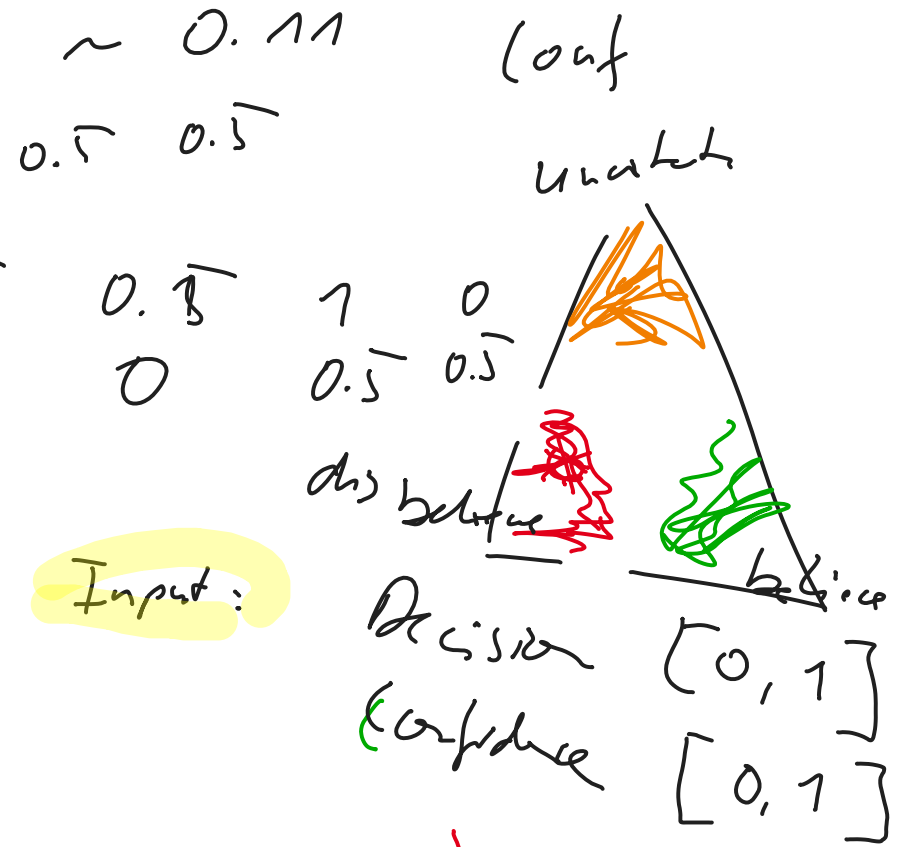 ~ 0.11
Conf
0.5 0.5
0.5 1 0
0 0.5 0.5
disbelieve
believe
Input:
Decision [0, 1]
Confidence [0, 1]